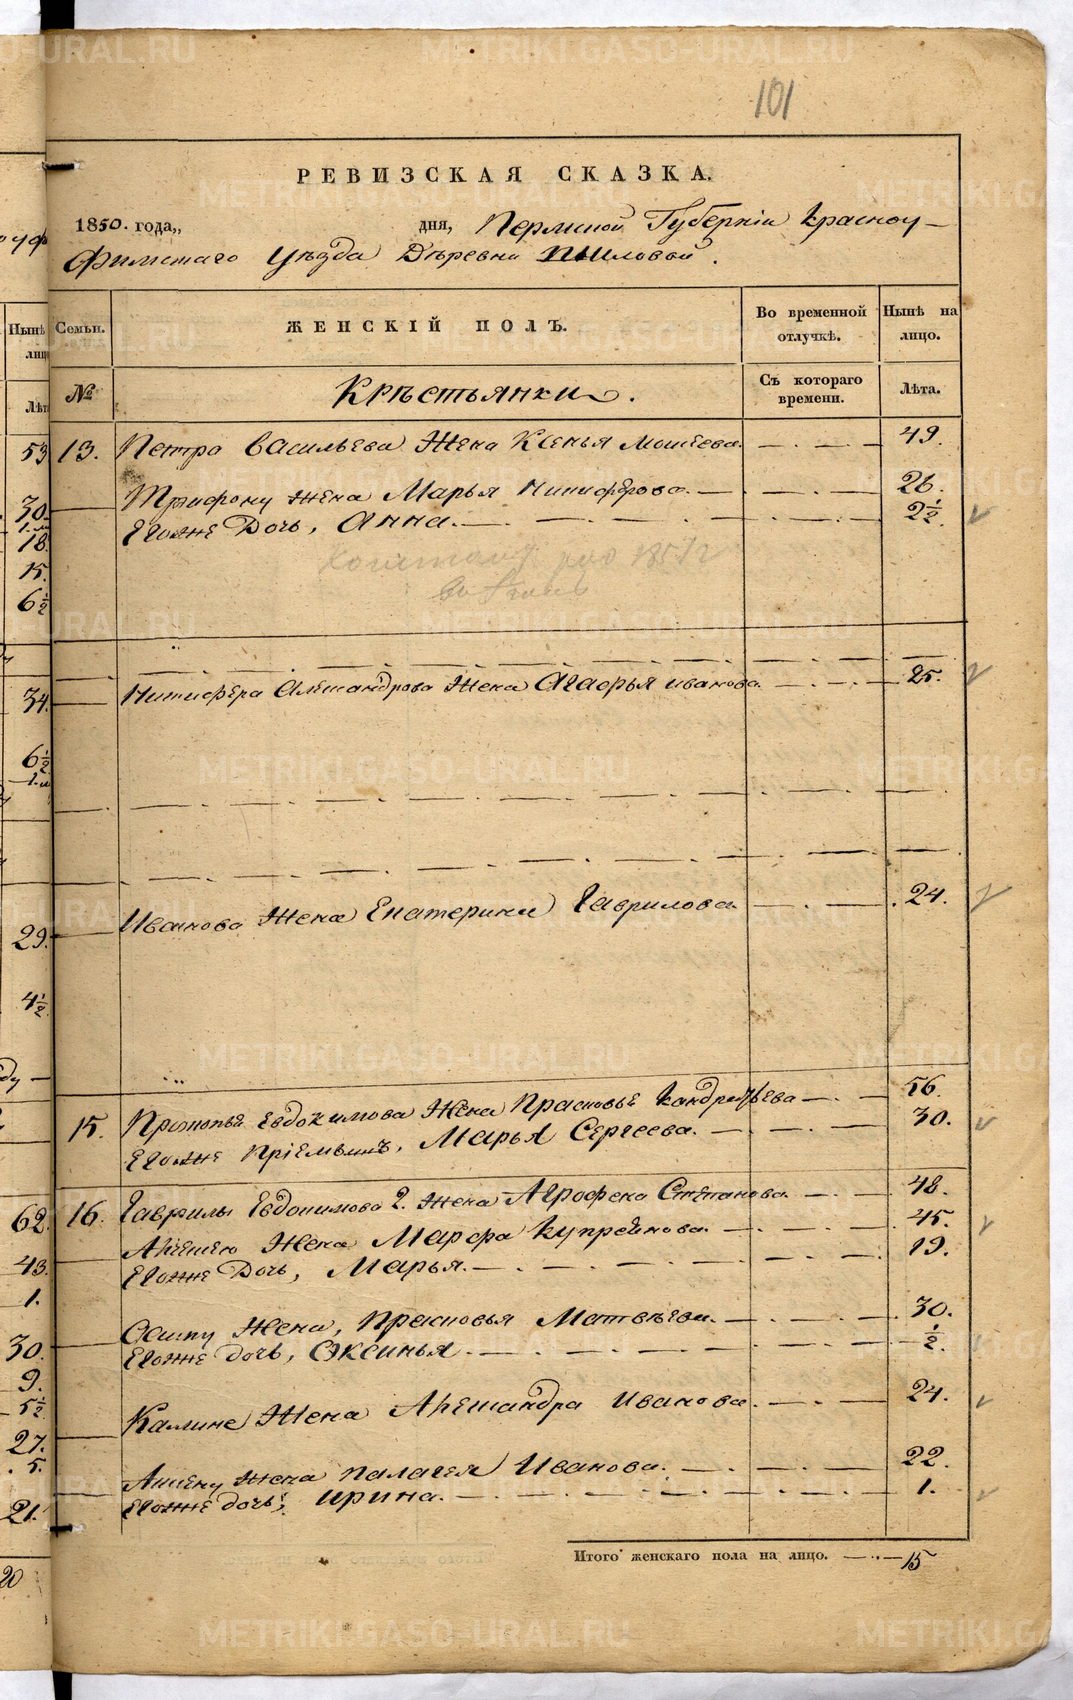 101
РЕВИЗСКАЯ СКАЗКА.
1850. года,, дня, Пермской Губерніи Красноу-
фимскаго Уѣзда Дѣревни Шиловой.
Семьи. ЖЕНСКІЙ ПОЛЪ. Во временной отлучкѣ. Нынѣ на лицо.
№ Крѣстьянки. Съ котораго времени. Лѣта.
13. Петра Васильева Жена Ксенья Мосеева. 49.
Трифону жена Марья Никифорова. 26.
Егоже Дочь, Анна. 2½
Никифера Александрова Жена Агафья иванова. 25.
Иванова Жена Екатерина Гаврилова. 24.
15. Прокопья Евдокимова Жена Прасковья Кандратьева 56.
Егоже Пріемышъ, Марья Сергеева. 30.
16. Гаврилы Евдокимова 2. жена Агрофена Степанова. 48.
Алексею Жена Марфа Купреянова. 45.
Егоже Дочь, Марья. 19.
Осипу Жена, Прасковья Матвѣева. 30.
Егоже дочь, Оксинья. ½.
Калине Жена Александра Иванова. 24.
жена Палагея Иванова. 22.
Егоже дочь, Ирина. 1.
Итого женскаго пола на лицо. 15
Нынѣ
лицо
Лѣт
53
30
1. м
18.
15.
6½
34.
6½
1. м
29.
4½
62.
43.
1.
30.
9.
5½
27.
5.
21.
20
METRIKI.GASO-URAL.RU